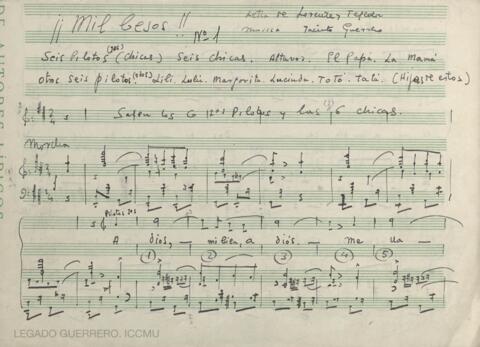 ¡¡ Mil besos !!
Nº 1
Letra de Lorente y Tejedor
Música Jacinto Guerrero
Seis Pilotos (1os) (chicas) Seis chicas. El Papá. La Mamá
otros seis pilotos. Lili. Lulu. Margarita. Lucinda. Totó. Talú.
Salen los 6 1os Pilotos y las 6 chicas.
Marcha
Pilotos 1os
A dios, - a dios. - me va -
1 2 3 4 5
LEGADO GUERRERO. ICCMU